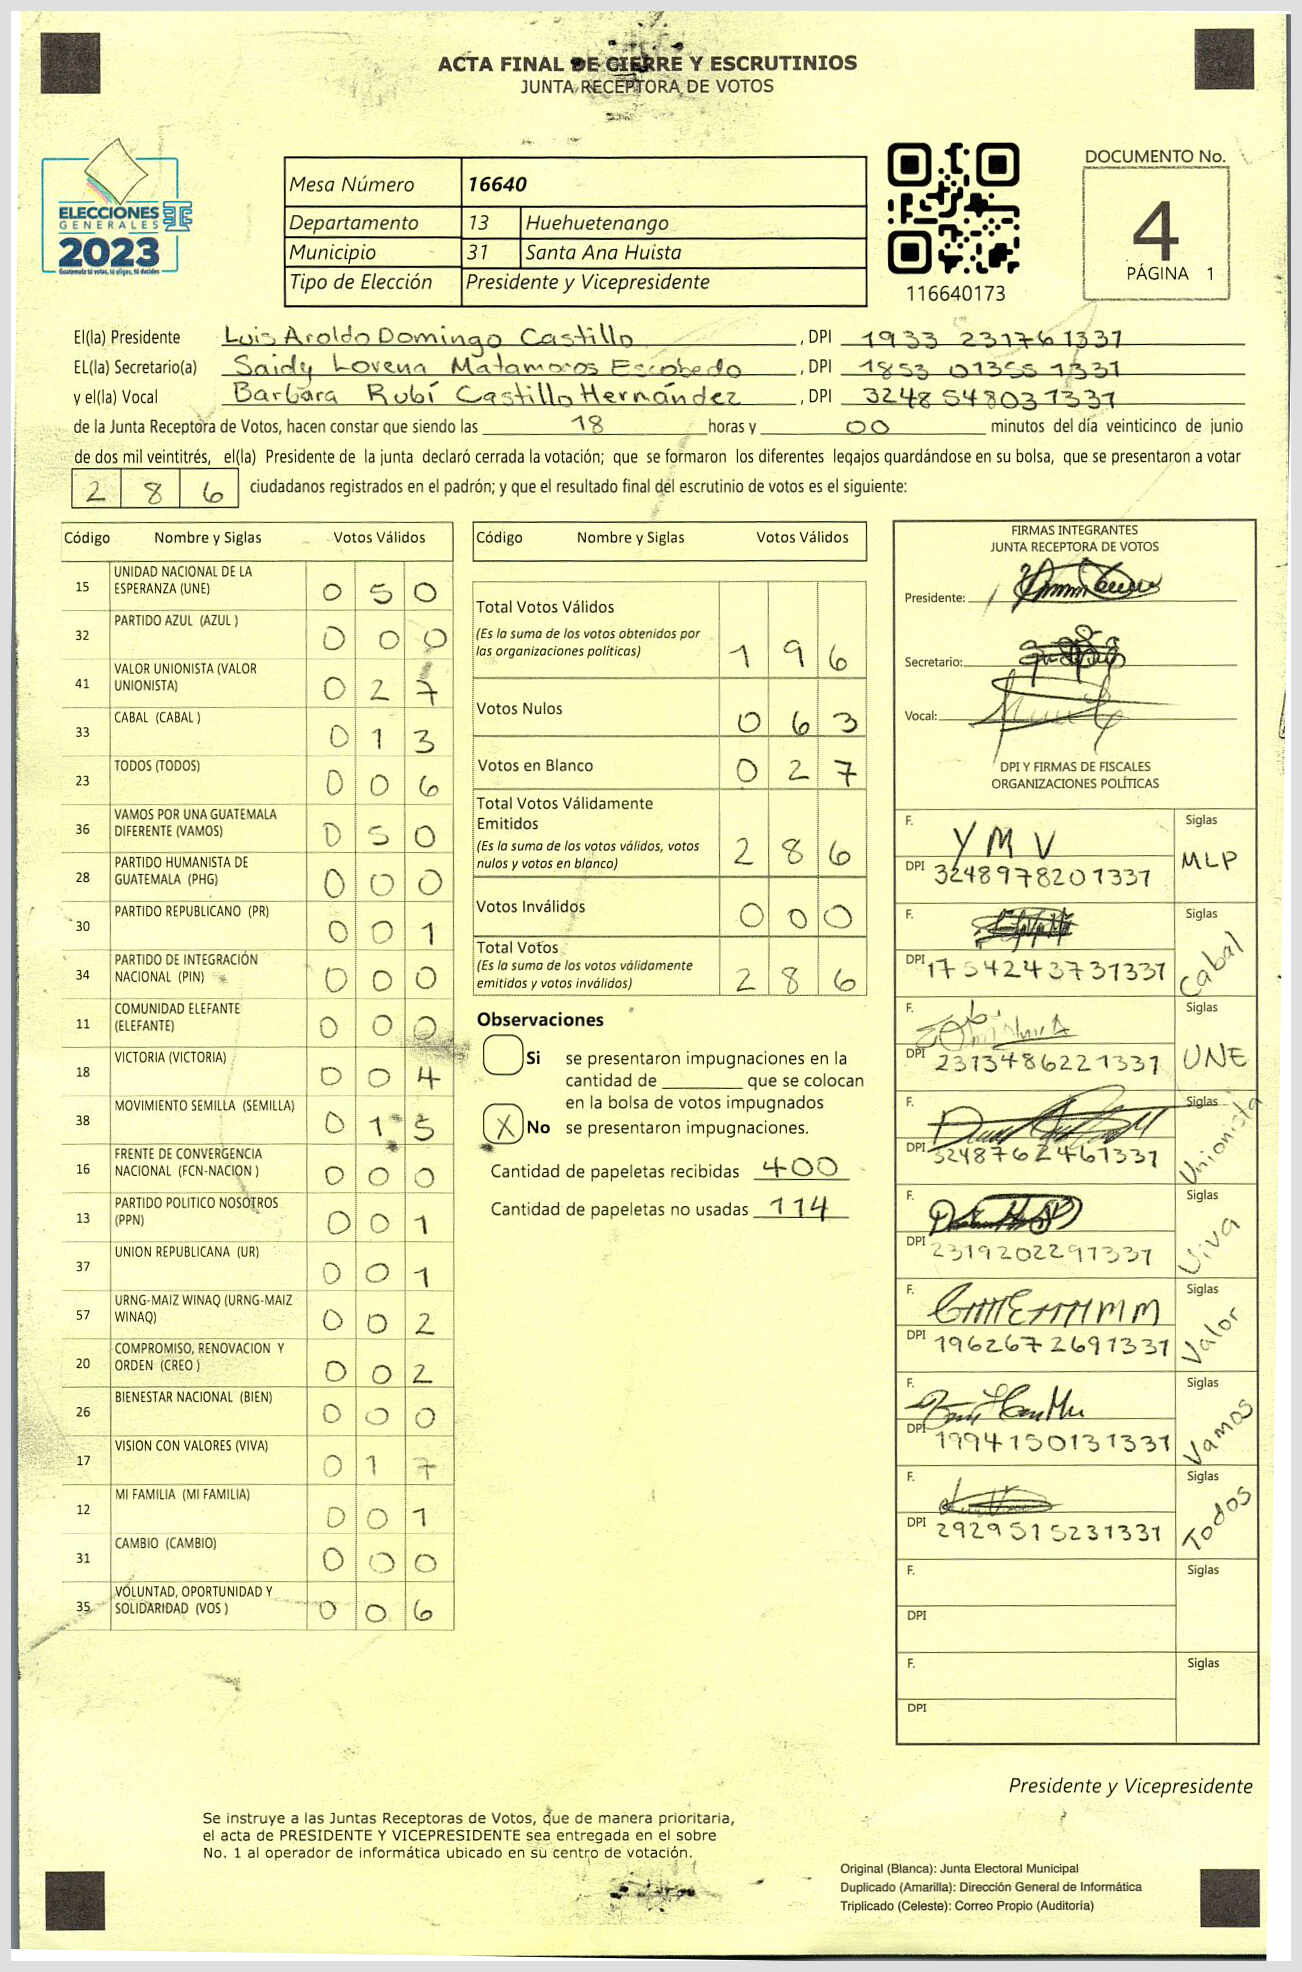 ACTA FINAL DE CIERRE Y ESCRUTINIOS
JUNTA RECEPTORA DE VOTOS
ELECCIONES
GENERALES
2023
Guatemala tú votas, tú eliges, tú decides
Mesa Número 16640
Departamento 13 Huehuetenango
Municipio 31 Santa Ana Huista
Tipo de Elección Presidente y Vicepresidente
116640173
DOCUMENTO No.
4
PÁGINA 1
El(la) Presidente Luis Aroldo Domingo Castillo, DPI 1933 23176 1331
EL(la) Secretario(a) Saidy Lorena Matamoros Escobedo, DPI 1853 01355 1331
y el(la) Vocal Barbara Rubí Castillo Hernández, DPI 3248 54803 1331
de la Junta Receptora de Votos, hacen constar que siendo las 18 horas y 00 minutos del día veinticinco de junio
de dos mil veintitrés, el(la) Presidente de la junta declaró cerrada la votación; que se formaron los diferentes legajos guardándose en su bolsa, que se presentaron a votar
286 ciudadanos registrados en el padrón; y que el resultado final del escrutinio de votos es el siguiente:
Código Nombre y Siglas Votos Válidos
15 UNIDAD NACIONAL DE LA ESPERANZA (UNE) 0 5 0
32 PARTIDO AZUL (AZUL ) 0 0 0
41 VALOR UNIONISTA (VALOR UNIONISTA) 0 2 7
33 CABAL (CABAL ) 0 1 3
23 TODOS (TODOS) 0 0 6
36 VAMOS POR UNA GUATEMALA DIFERENTE (VAMOS) 0 5 0
28 PARTIDO HUMANISTA DE GUATEMALA (PHG) 0 0 0
30 PARTIDO REPUBLICANO (PR) 0 0 1
34 PARTIDO DE INTEGRACIÓN NACIONAL (PIN) 0 0 0
11 COMUNIDAD ELEFANTE (ELEFANTE) 0 0 0
18 VICTORIA (VICTORIA) 0 0 4
38 MOVIMIENTO SEMILLA (SEMILLA) 0 1 5
16 FRENTE DE CONVERGENCIA NACIONAL (FCN-NACION ) 0 0 0
13 PARTIDO POLITICO NOSOTROS (PPN) 0 0 1
37 UNION REPUBLICANA (UR) 0 0 1
57 URNG-MAIZ WINAQ (URNG-MAIZ WINAQ) 0 0 2
20 COMPROMISO, RENOVACION Y ORDEN (CREO ) 0 0 2
26 BIENESTAR NACIONAL (BIEN) 0 0 0
17 VISION CON VALORES (VIVA) 0 1 7
12 MI FAMILIA (MI FAMILIA) 0 0 1
31 CAMBIO (CAMBIO) 0 0 0
35 VOLUNTAD, OPORTUNIDAD Y SOLIDARIDAD (VOS ) 0 0 6
Código Nombre y Siglas Votos Válidos
Total Votos Válidos
(Es la suma de los votos obtenidos por
las organizaciones políticas) 1 9 6
Votos Nulos 0 6 3
Votos en Blanco 0 2 7
Total Votos Válidamente
Emitidos
(Es la suma de los votos válidos, votos
nulos y votos en blanco) 2 8 6
Votos Inválidos 0 0 0
Total Votos
(Es la suma de los votos válidamente
emitidos y votos inválidos) 2 8 6
Observaciones
Si se presentaron impugnaciones en la
cantidad de ________ que se colocan
en la bolsa de votos impugnados
X No se presentaron impugnaciones.
Cantidad de papeletas recibidas 400
Cantidad de papeletas no usadas 114
FIRMAS INTEGRANTES
JUNTA RECEPTORA DE VOTOS
Presidente:
Secretario:
Vocal:
DPI Y FIRMAS DE FISCALES
ORGANIZACIONES POLÍTICAS
F. Y M V Siglas
DPI 3248978201331 MLP
F. Siglas
DPI 1754243731331 Cabal
F. Siglas
DPI 2313486221331 UNE
F. Siglas
DPI 3248762461331 Unionista
F. Siglas
DPI 2319202291331 Viva
F. Siglas
DPI 1962672691331 Valor
F. Siglas
DPI 1994150131331 Vamos
F. Siglas
DPI 2929515231331 Todos
F. Siglas
DPI
F. Siglas
DPI
Presidente y Vicepresidente
Se instruye a las Juntas Receptoras de Votos, que de manera prioritaria,
el acta de PRESIDENTE Y VICEPRESIDENTE sea entregada en el sobre
No. 1 al operador de informática ubicado en su centro de votación.
Original (Blanca): Junta Electoral Municipal
Duplicado (Amarilla): Dirección General de Informática
Triplicado (Celeste): Correo Propio (Auditoría)